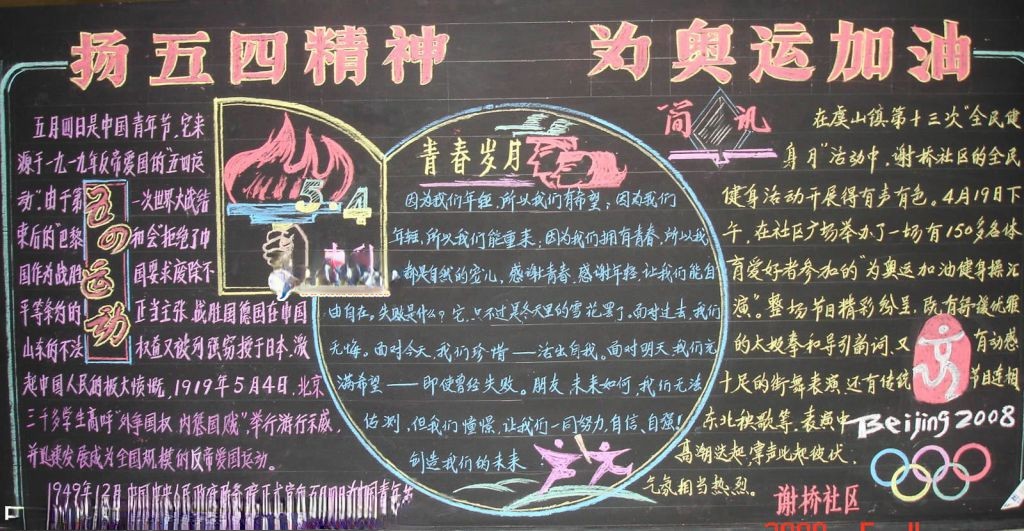 扬五四精神 为奥运加油
五月四日是中国青年节，它来
源于一九一九年反帝爱国的"五四运
动"，由于第一次世界大战结
束后的"巴黎和会"拒绝了中
国作为战胜国要求废除不
平等条约的正当主张，战胜国德国在中国
山东的不法权益又被列强窃授于日本，激
起中国人民的极大愤慨，1919年5月4日，北京
三千多学生高呼"外争国权 内惩国贼"，举行游行示威，
并迅速发展成为全国规模的反帝爱国运动。
1949年12月
五四运动
5.4
青春岁月
因为我们年轻，所以我们有希望；因为我们
年轻，所以我们能重来，因为我们拥有青春，所以我
都是自然的宠儿，感谢青春，感谢年轻，让我们能自
由自在。失败是什么？它，只不过是冬天里的雪花罢了。面对过去，我们
无悔。面对今天，我们珍惜——活出自我。面对明天，我们充
满希望——即使曾经失败。朋友，未来如何，我们无法
估测，但我们憧憬，让我们一同努力，自信、自强！
创造我们的未来
简讯
在虞山镇第十三次"全民健
身月"活动中，谢桥社区的全民
健身活动开展得有声有色。4月19日下
午，在社区广场举办了一场有150多名体
育爱好者参加的"为奥运加油健身操汇
演"。整场节目精彩纷呈，既有舒缓优雅
的太极拳和导引前词，又有动感
十足的街舞表演，还有传统节目连相
东北秧歌等，表演中
高潮迭起，掌声此起彼伏，
气氛相当热烈。
Beijing 2008
谢桥社区